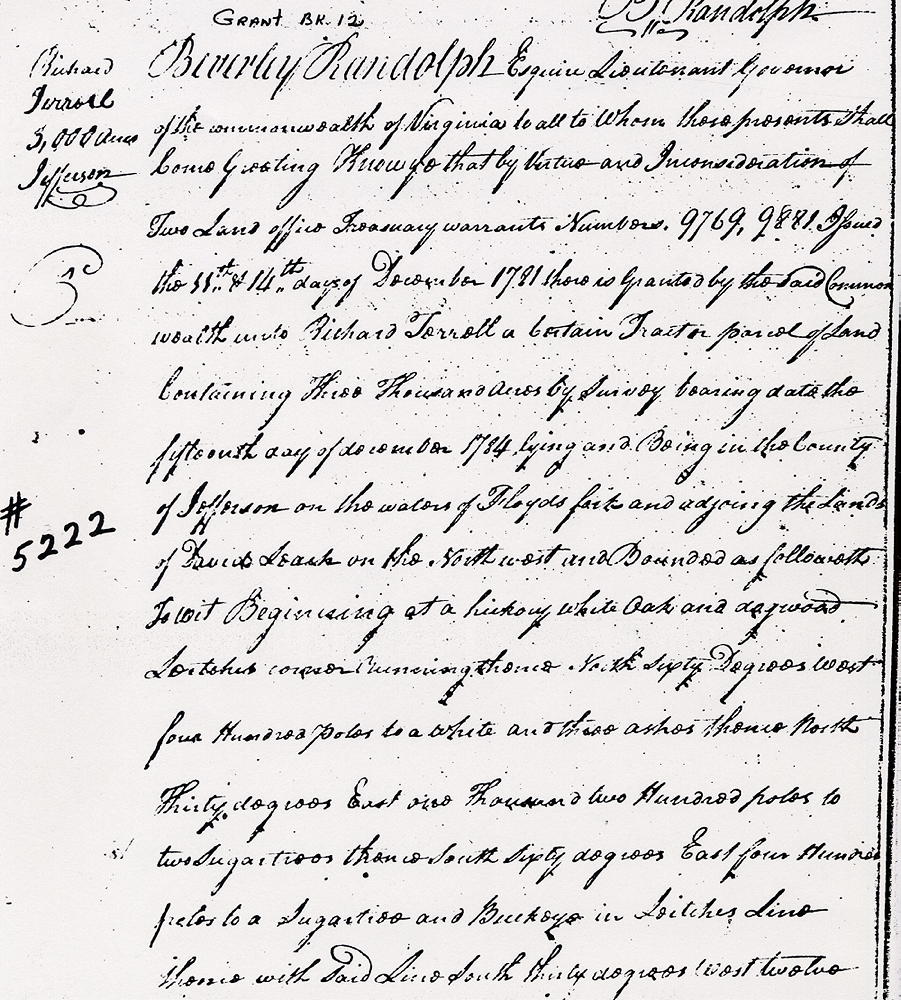 GRANT BK. 12
Randolph
Richard
Terrell
3,000 Acres
Jefferson
#
5222
Beverley Randolph Esquire Lieutenant Governor
of the commonwealth of Virginia to all to Whom these presents Shall
Come Greeting Know ye that by Virtue and Inconsideration of
Two Land office Treasury warrants Numbers. 9769, 9881 Issued
the 11th & 14th days of December 1781 there is Granted by the Said Common
wealth unto Richard Terrell a Certain Tract or parcel of Land
Containing Three Thousand Acres by Survey bearing date the
fifteenth day of december 1784 lying and Being in the County
of Jefferson on the waters of Floyds fork and adjoing the Lands
of David Leach on the North west and Bounded as followeth
To wit Begining at a hickory white Oak and dogwood
Leitches corner Running thence North Sixty Degrees West
four Hundred poles to a White and three ashes thence North
Thirty degrees East one Thousand two Hundred poles to
two Sugartrees thence South Sixty degrees East four Hundred
poles to a Sugartree and Buckeye in Leitches Line
thence with Said Line South thirty degrees West twelve